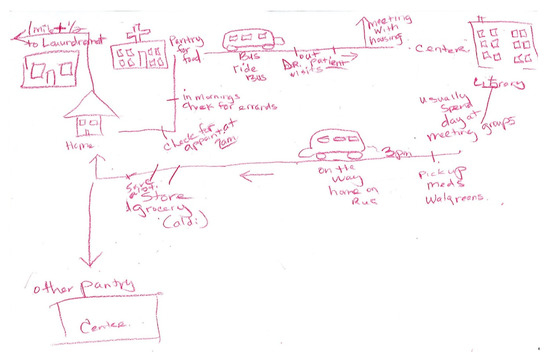 1mile + 1/2
to Laundromat
Pantry
for
food
Bus
ride
Bus
out
DR. patient
visits
meeting
with
housing
Centere
Library
usually
spend
day at
meeting groups
in mornings
chek for errands
check for
appoint at
9am
Home
3pm
on the
way
home on
Bus
pick up
meds
Walgreens.
Store
grocery
(aldi)
other pantry
Center